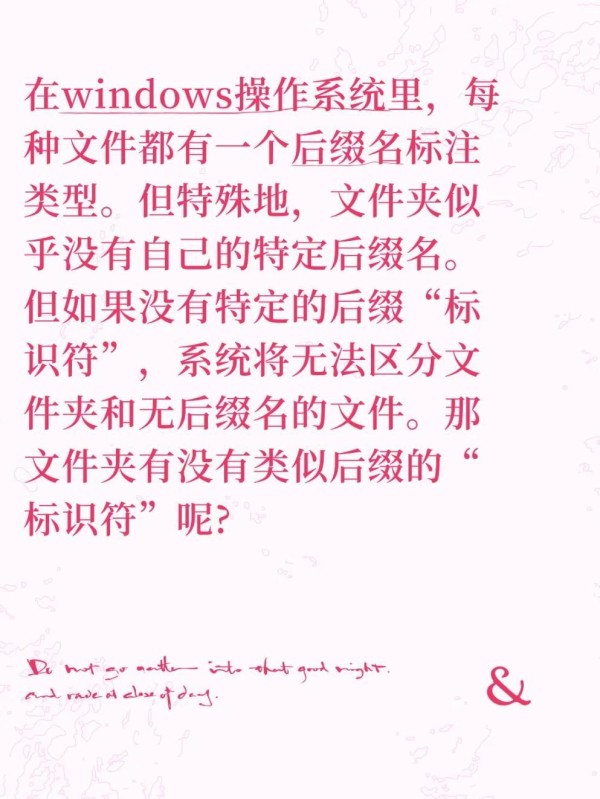 在windows操作系统里，每
种文件都有一个后缀名标注
类型。但特殊地，文件夹似
乎没有自己的特定后缀名。
但如果没有特定的后缀“标
识符”，系统将无法区分文
件夹和无后缀名的文件。那
文件夹有没有类似后缀的“
标识符”呢?
Do not go gentle into that good night.
and rave at close of day.
&